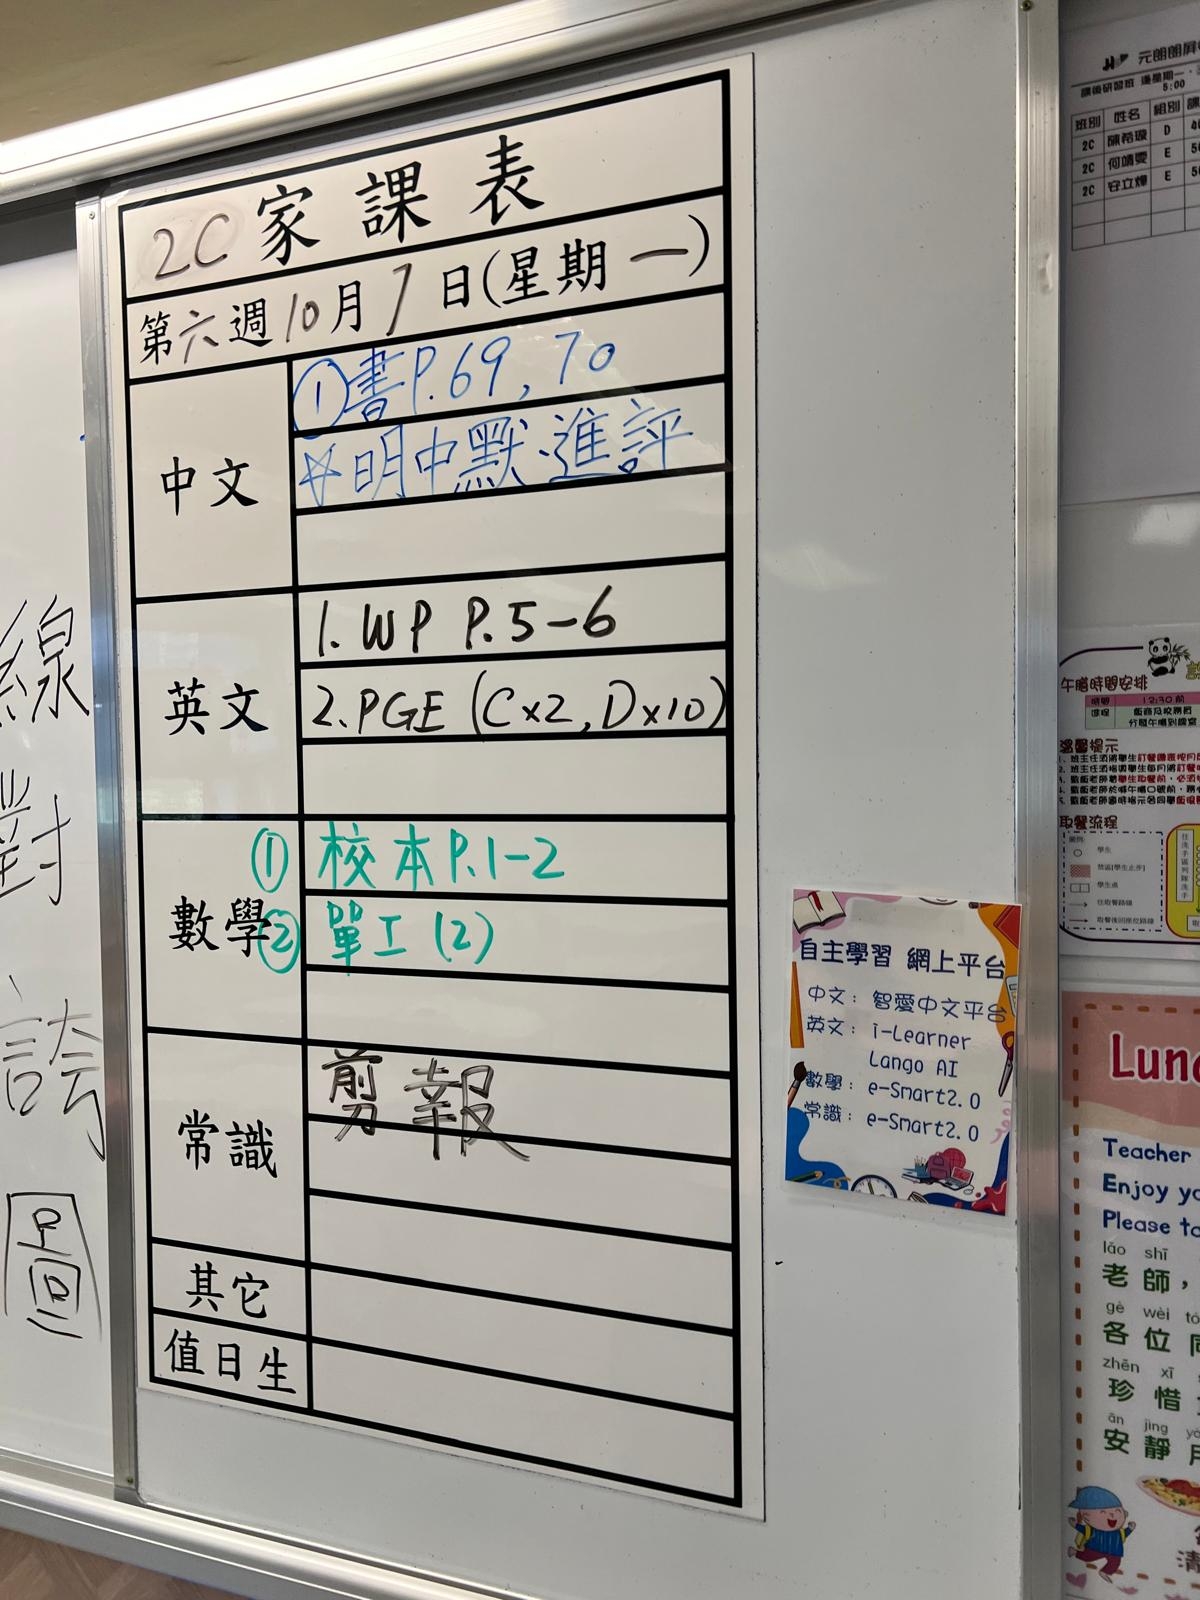 2C 家課表
第六週10月7日(星期一)
中文
①書P.69, 70
☆明中默.進評
英文
1. WP P.5-6
2. PGE (C×2, D×10)
數學
① 校本P.1-2
② 單工(2)
常識
剪報
其它
值日生
線
對
誇
圖
元朗朗屏
課後研習班 逢星期一
5:00
班別 姓名 組別
2C D
2C E
2C 安立煒 E
午膳時間安排
時間 12:30前
溫馨提示
取餐流程
學生
自主學習 網上平台
中文：智愛中文平台
英文：i-Learner
Lango AI
數學：e-Smart2.0
常識：e-Smart2.0
Teacher
Enjoy
Please
lǎo shī
老師，
gè wèi
各位
zhēn xī
珍惜
ān jìng
安靜